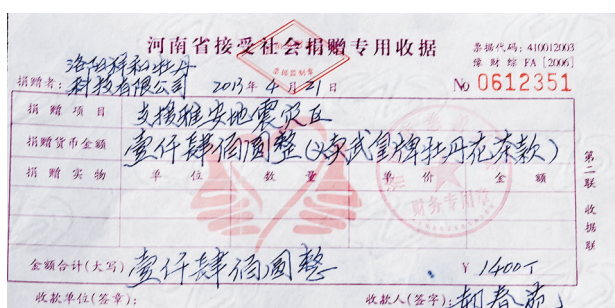 河南省接受社会捐赠专用收据
票据代码：410012003
豫财综FA [2006]
捐赠者：洛阳祥和牡丹科技有限公司
2013年4月21日
No 0612351
捐赠项目 支援雅安地震灾区
捐赠货币金额 壹仟肆佰圆整（义卖武皇牌牡丹花茶款）
捐赠实物 单位 数量 单价 金额
财务专用章
金额合计(大写) 壹仟肆佰圆整 ¥1400
收款单位(签章)： 收款人(签字)：
第二联 收据联